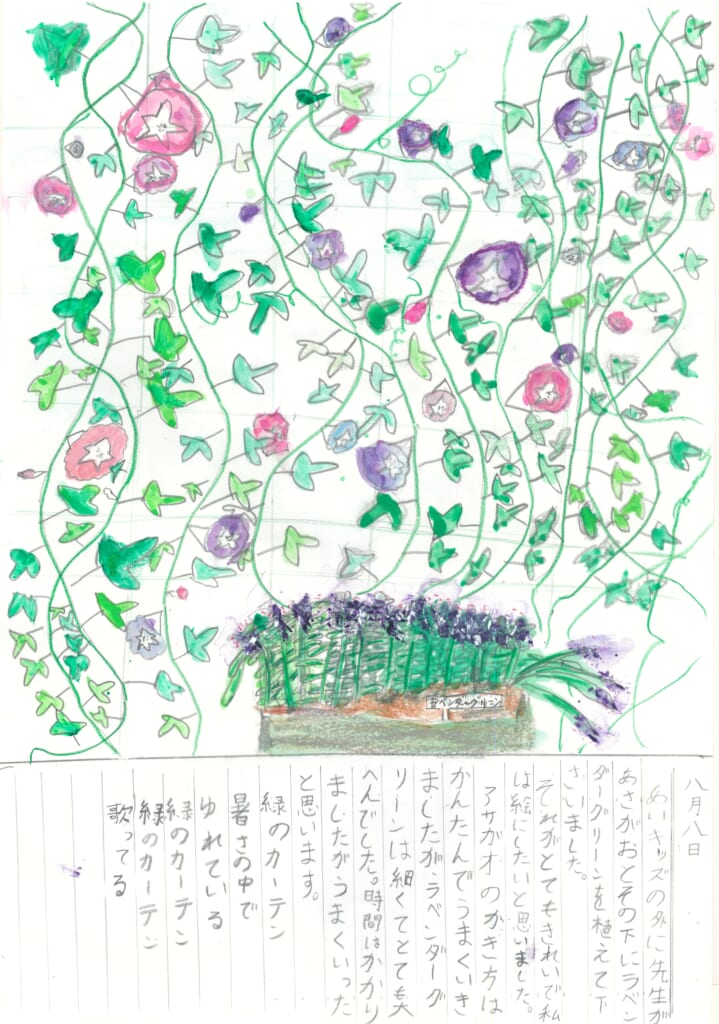 ラベンダーグリーン
八月八日
めいキッズの外に先生が
あさがおとその下にラベン
ダーグリーンを植えて下
さいました。
それがとてもきれいで私
は絵にしたいと思いました。
アサガオのかき方は
かんたんでうまくいき
ましたがラベンダーグ
リーンは細くてとても大
へんでした。時間はかかり
ましたがうまくいった
と思います。
緑のカーテン
暑さの中で
ゆれている
緑のカーテン
緑のカーテン
歌ってる